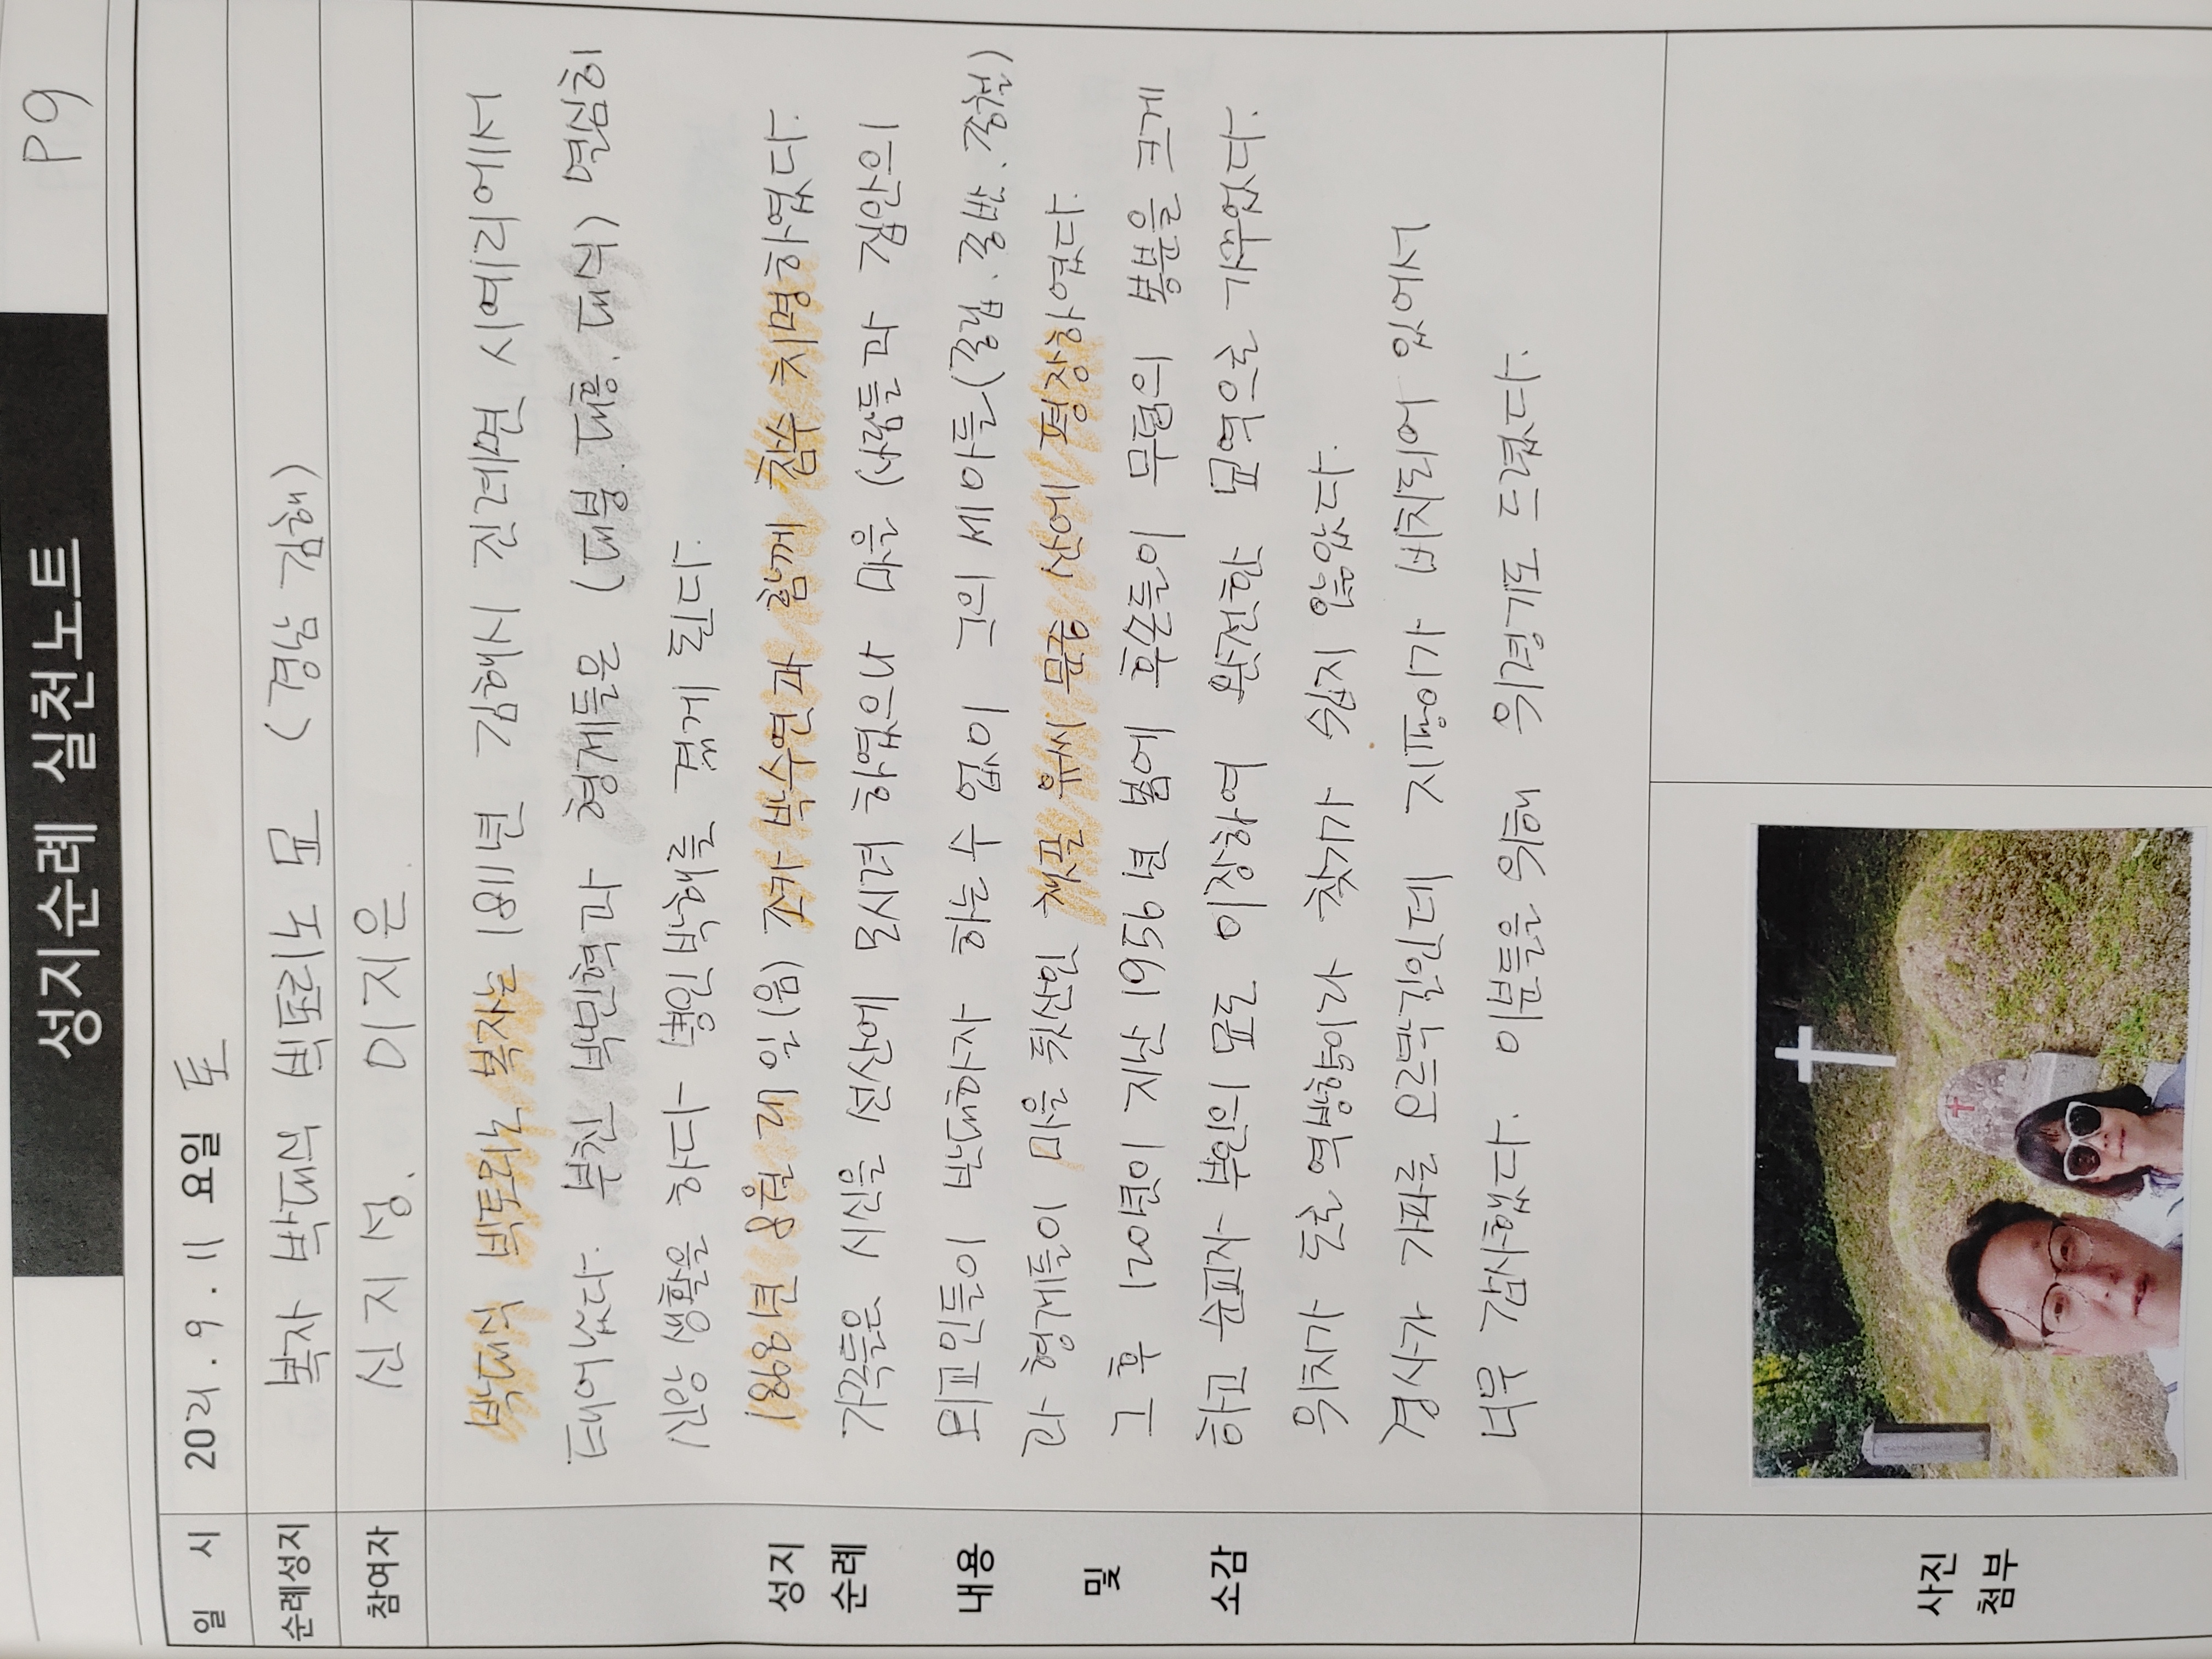 성지순례 실천노트 P9
일 시 2021. 9. 11 요일 토
순례성지 복자 박대식 빅토리노 묘 (경남 김해)
참여자 신지성. 이지은.
성지 순례 내용 및 소감
박대식 빅토리노 복자는 1811년 김해시 진례면 시예리에서
태어났다. 부친 박민혁과 형제들은 (대붕. 대흥. 대식) 열심히
신앙 생활을 하다 병인박해를 겪게 된다.
1868년 8월 27일(음) 조카 박수연과 함께 참수 치명하였다.
가족들은 시신을 선산에 모시려 하였으나 마을 사람들과 집안의
외교인들이 반대하자 하는수 없이 그의 세 아들(종립. 종반. 종철)
과 형제들이 마을 뒷산인 챗골 유씨 문중 산에 평장하였다.
그 후 120년이 지난 1956년 봄에 후손들이 무덤의 봉분을 크게
하고 순교자 부인의 묘도 이장하여 완전한 묘역으로 가꾸었다.
위치가 도로 역방향이라 찾기가 쉽지 않았다.
경사가 가파른 오르막길인데 지팡이가 비치되어 있어서
너무 감사했다. 이분들을 위해 위령기도 드렸다.
사진 첨부